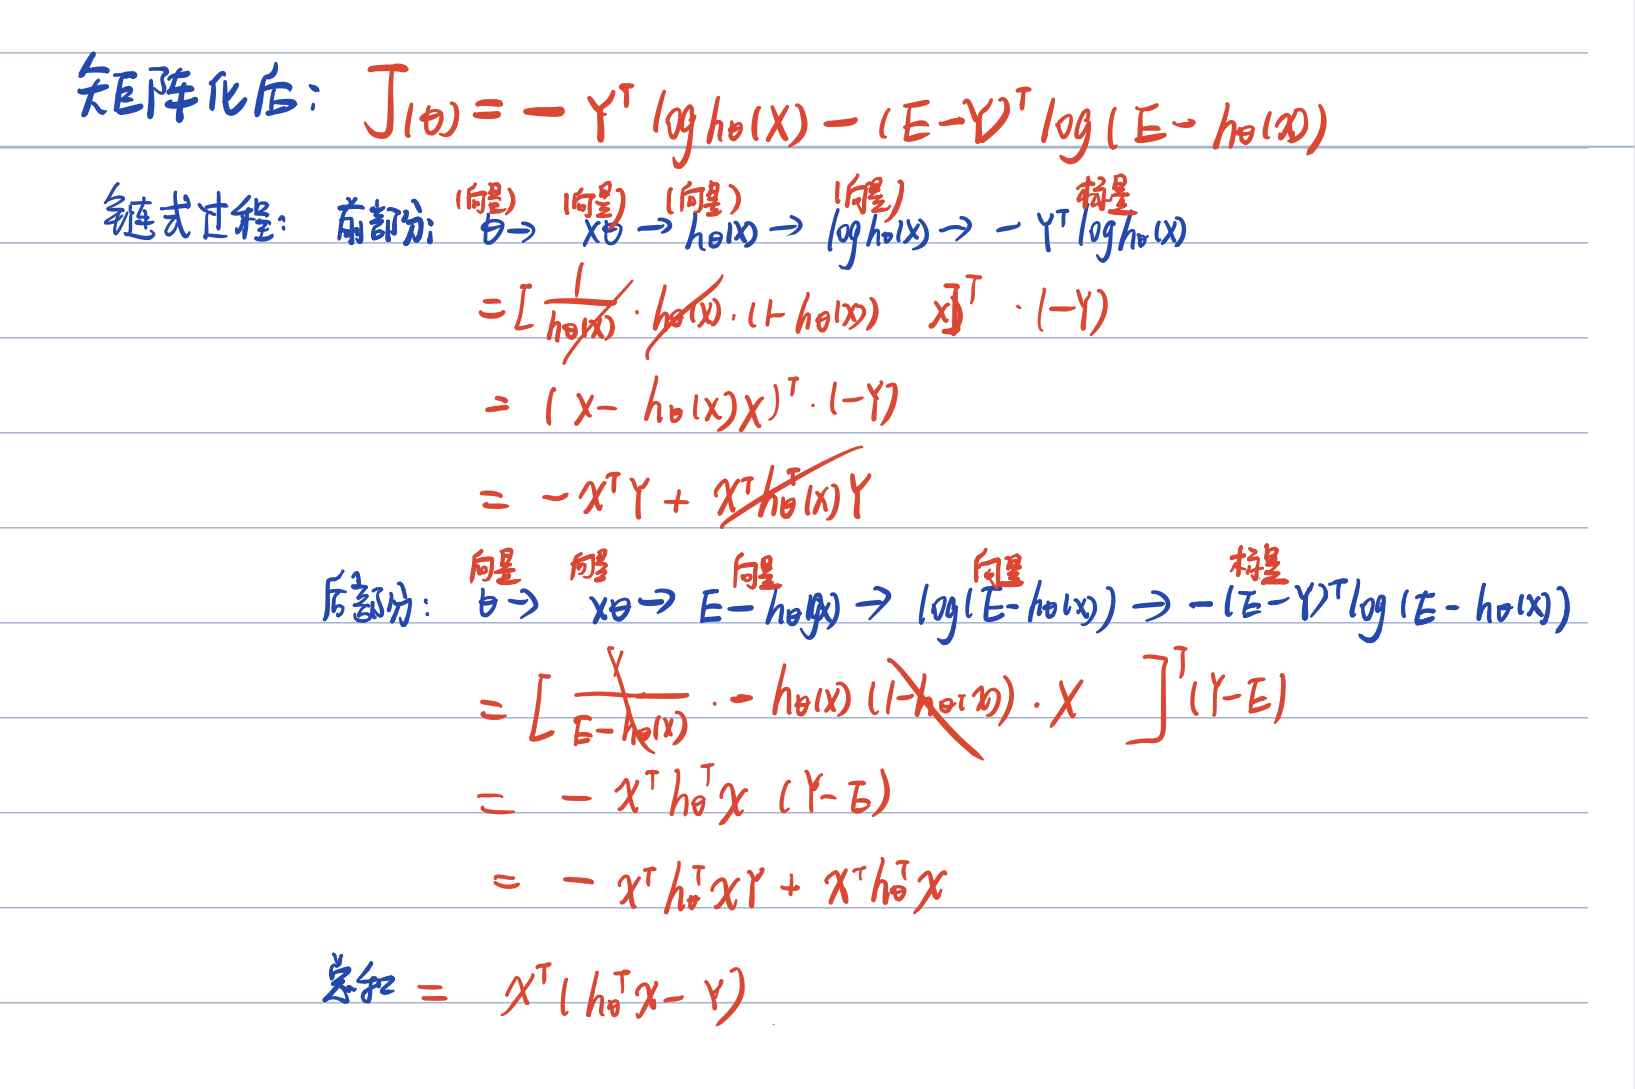 矩阵化后: J(θ) = - Yᵀ log hθ(X) - (E-Y)ᵀ log(E - hθ(x))
(向量) (向量) (向量) (向量) 标量
链式过程: 前部分: θ → xθ → hθ(x) → log hθ(x) → - Yᵀ log hθ(x)
= [ 1/hθ(x) · hθ(x) · (1- hθ(x)) x]ᵀ · (-Y)
= (x - hθ(x)x)ᵀ · (-Y)
= - xᵀY + xᵀhθᵀ(x)Y
向量 向量 向量 向量 标量
后部分: θ → xθ → E - hθ(x) → log(E - hθ(x)) → -(E-Y)ᵀ log(E - hθ(x))
= [ 1/(E-hθ(x)) · - hθ(x)(1-hθ(x)) · X ]ᵀ (Y-E)
= - xᵀhθᵀx (Y-E)
= - xᵀhθᵀxY + xᵀhθᵀx
总和 = xᵀ(hθᵀx - Y)